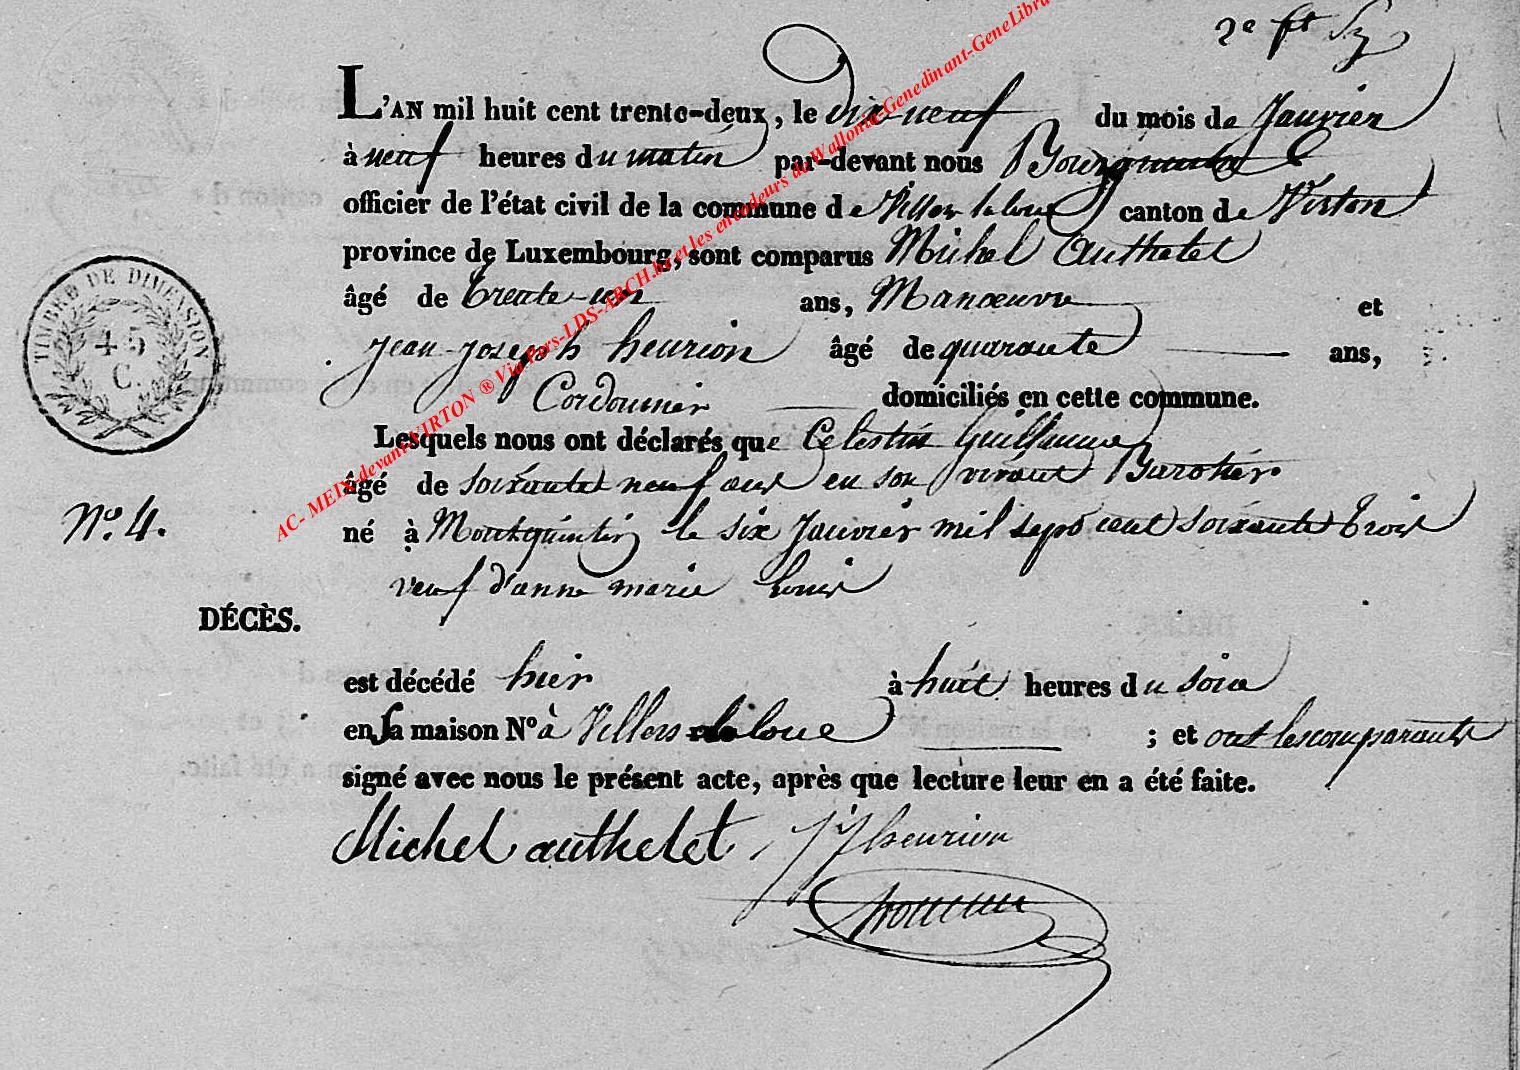 2e ft
L'AN mil huit cent trente-deux, le dix neuf du mois de Janvier
à neuf heures du matin par-devant nous
officier de l'état civil de la commune de Villers la loue canton de Virton
province de Luxembourg, sont comparus Michel Authelet
âgé de trente-un ans, Manœuvre et
Jean-Joseph henrion âgé de quarante ans,
Cordonnier domiciliés en cette commune.
Lesquels nous ont déclarés que Celestin Guillaume
âgé de soixante neuf ans en son vivant
No. 4. né à Montquintin le six Janvier mil sept cent soixante trois
veuf d'anne marie
DÉCÈS.
est décédé hier à huit heures du soir
en sa maison No à Villers la loue ; et ont les comparants
signé avec nous le présent acte, après que lecture leur en a été faite.
Michel authelet JJ henrion
TIMBRE DE DIMENSION
45
C.
AC- MEIX-devant-VIRTON ® Via Pers-LDS-ARCH.be et les encodeurs de Wallonia-Genedinant-GeneLibra